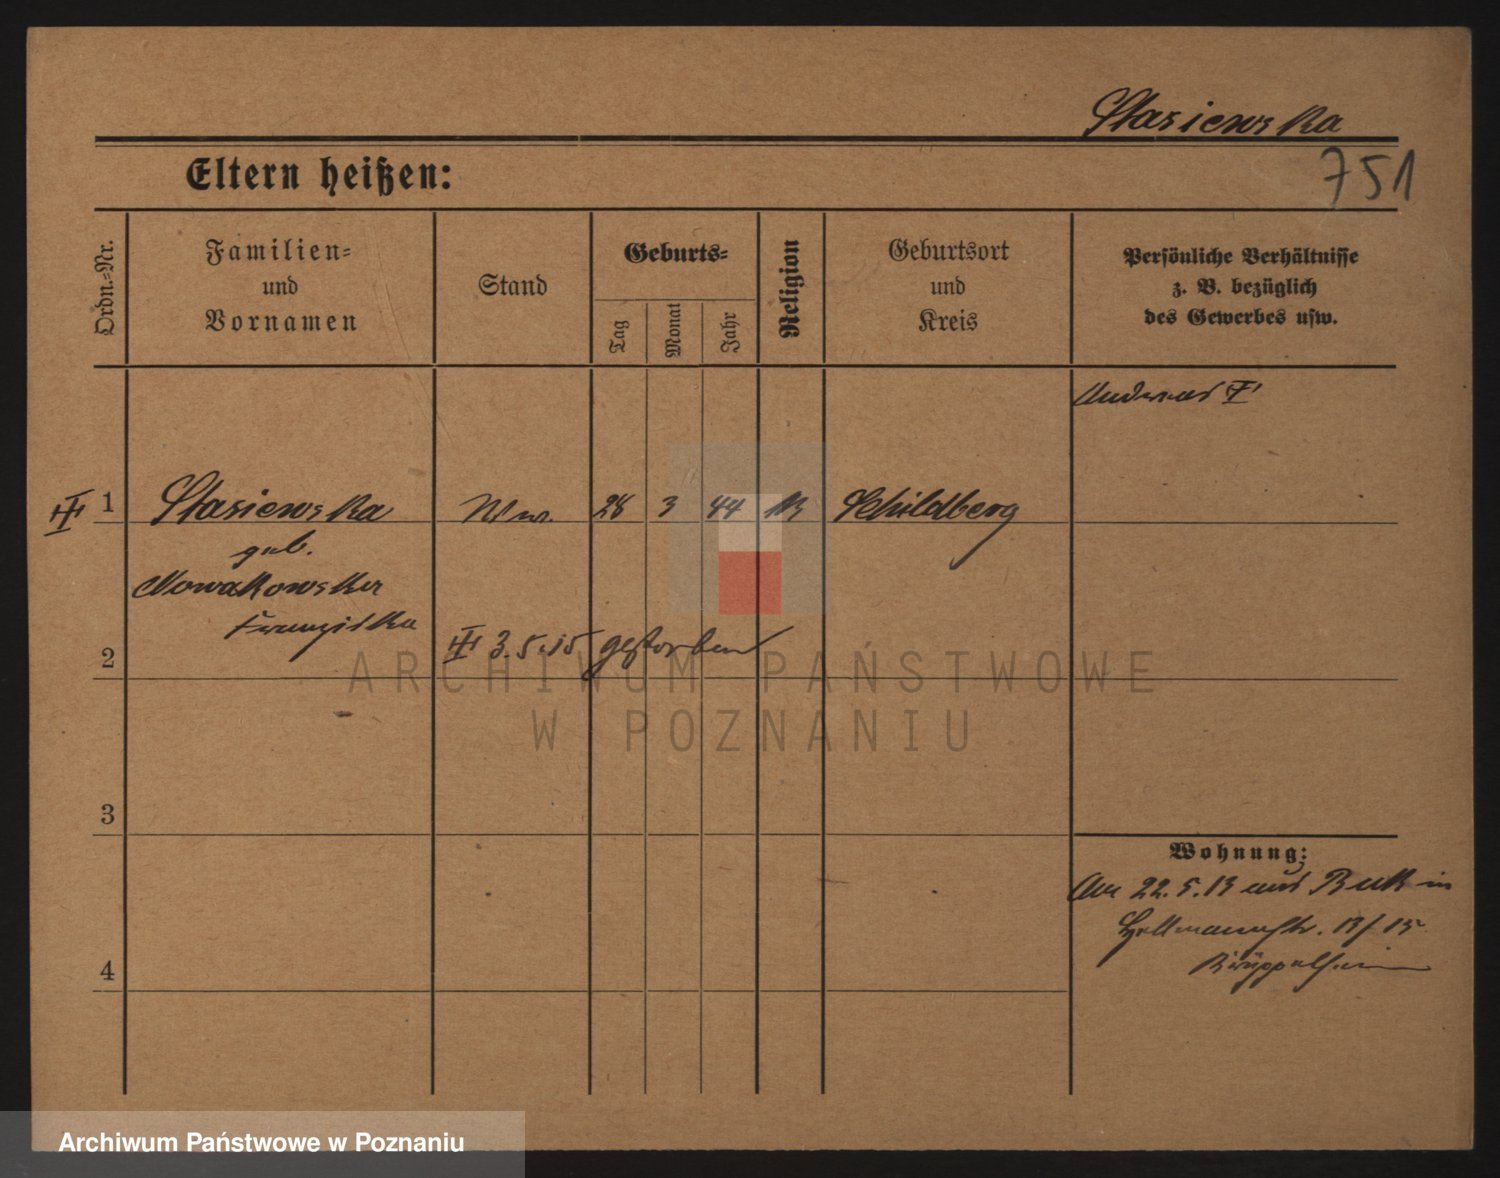 Stasiewska
751
Eltern heißen:
Ordn.-Nr.
Familien-
und
Vornamen
Stand
Geburts-
Tag
Monat
Jahr
Religion
Geburtsort
und
Kreis
Persönliche Verhältnisse
z. B. bezüglich
des Gewerbes usw.
Andreas
1 Stasiewska Ww. 28 3 44 Schildberg
geb.
Nowakowska
Franziska
2
3.5.15 gestorben
ARCHIWUM PAŃSTWOWE
W POZNANIU
3
Wohnung:
22.5.13 aus Buk in
Hellmannstr. 13/15
Krüppelheim
4
Archiwum Państwowe w Poznaniu